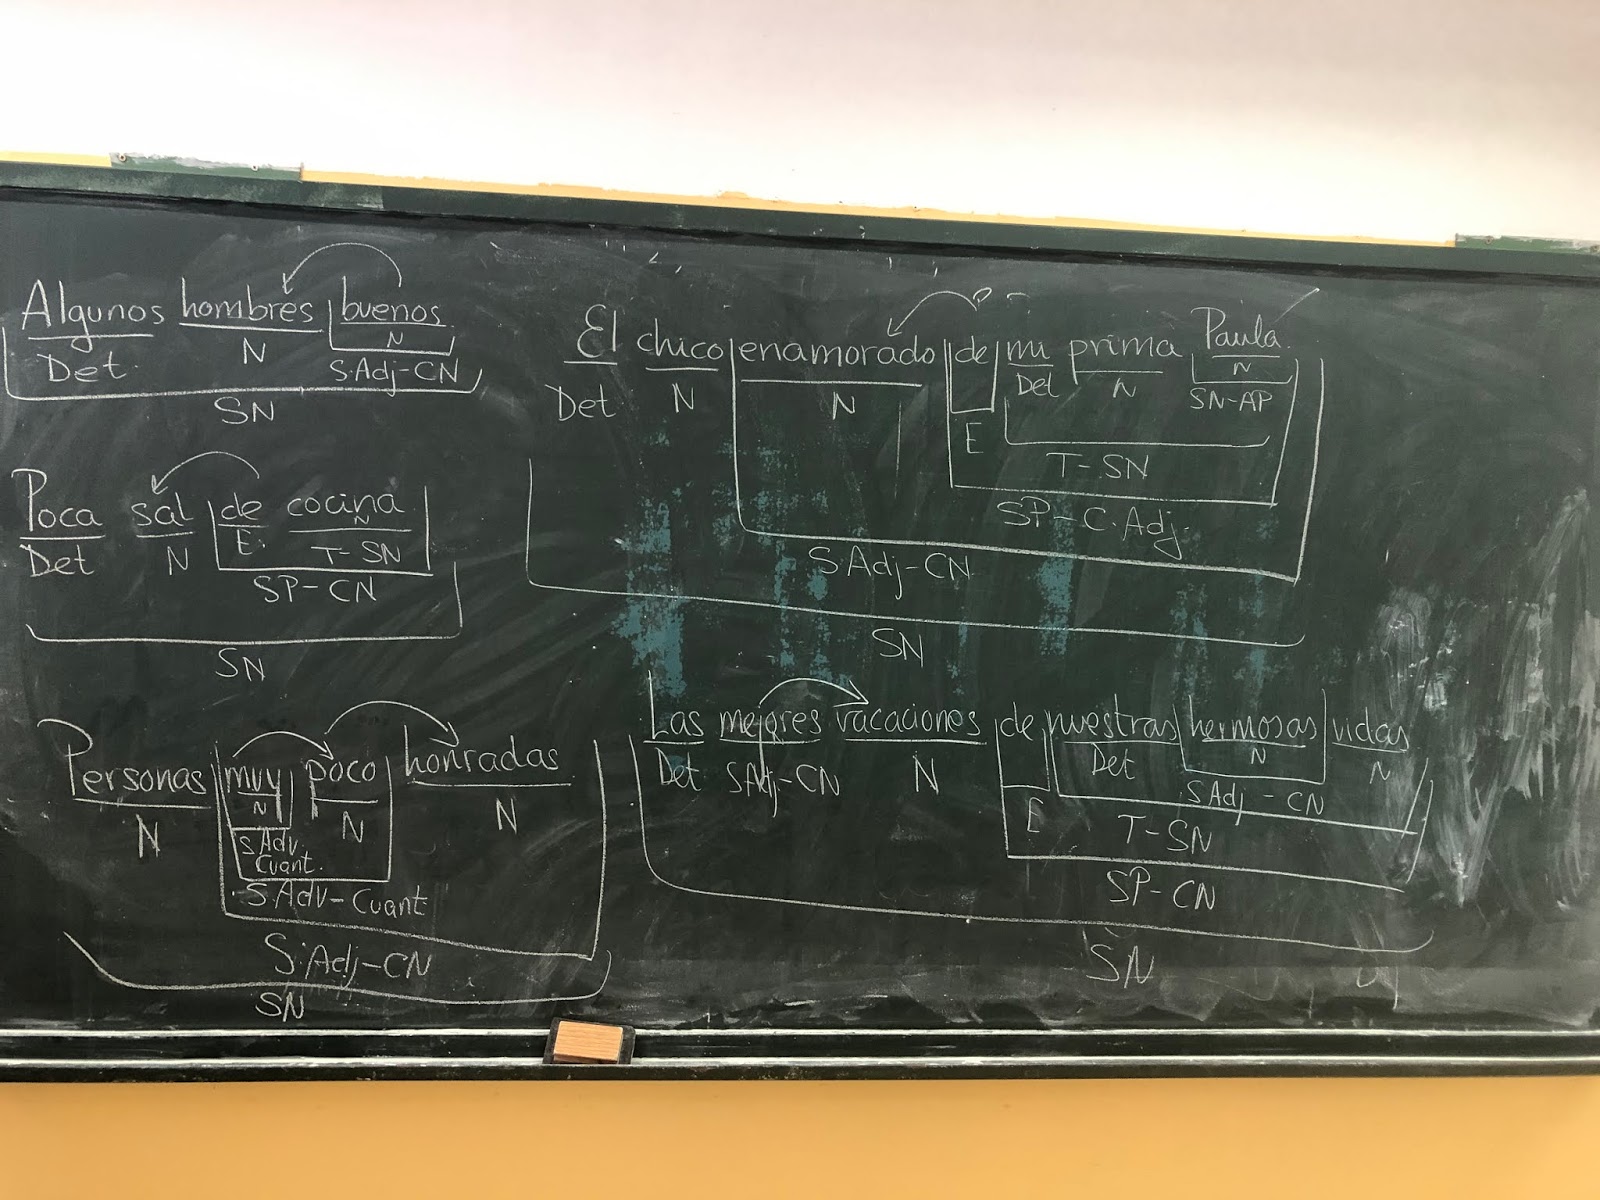 Algunos hombres buenos
N
Det. N S.Adj-CN
SN
Poca sal de cocina
N
Det N E. T-SN
SP-CN
SN
Personas muy poco honradas
N
N N N
S Adv.
Cuant.
S.Adv-Cuant
S.Adj-CN
SN
El chico enamorado de mi prima Paula
N
Det N N Det N SN-AP
E
T-SN
SP-C.Adj.
S.Adj-CN
SN
Las mejores vacaciones de nuestras hermosas vidas
N
Det SAdj-CN N Det N
SAdj-CN
E T-SN
SP-CN
SN